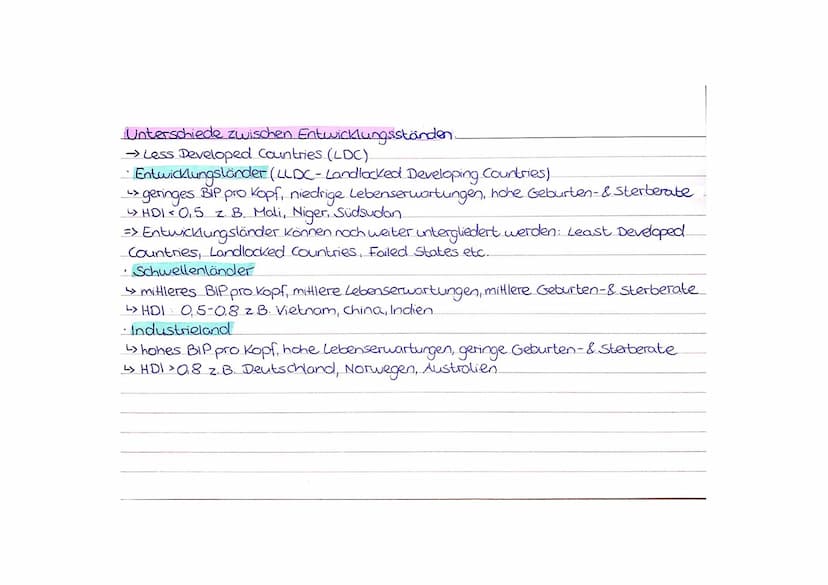 Unterschiede zwischen Entwicklungsständen
→ Less Developed Countries (LDC)
· Entwicklungsländer (LLDC - Landlocked Developing Countries)
↳ geringes BIP pro Kopf, niedrige Lebenserwartungen, hohe Geburten- & Sterberate
↳ HDI < 0,5 z.B. Mali, Niger, Südsudan
=> Entwicklungsländer können noch weiter untergliedert werden: Least Developed
Countries, Landlocked Countries, Failed States etc.
· Schwellenländer
↳ mittleres BIP pro Kopf, mittlere Lebenserwartungen, mittlere Geburten- & Sterberate
↳ HDI: 0,5-0,8 z.B. Vietnam, China, Indien
· Industrieland
↳ hohes BIP pro Kopf, hohe Lebenserwartungen, geringe Geburten- & Sterberate
↳ HDI > 0,8 z.B. Deutschland, Norwegen, Australien